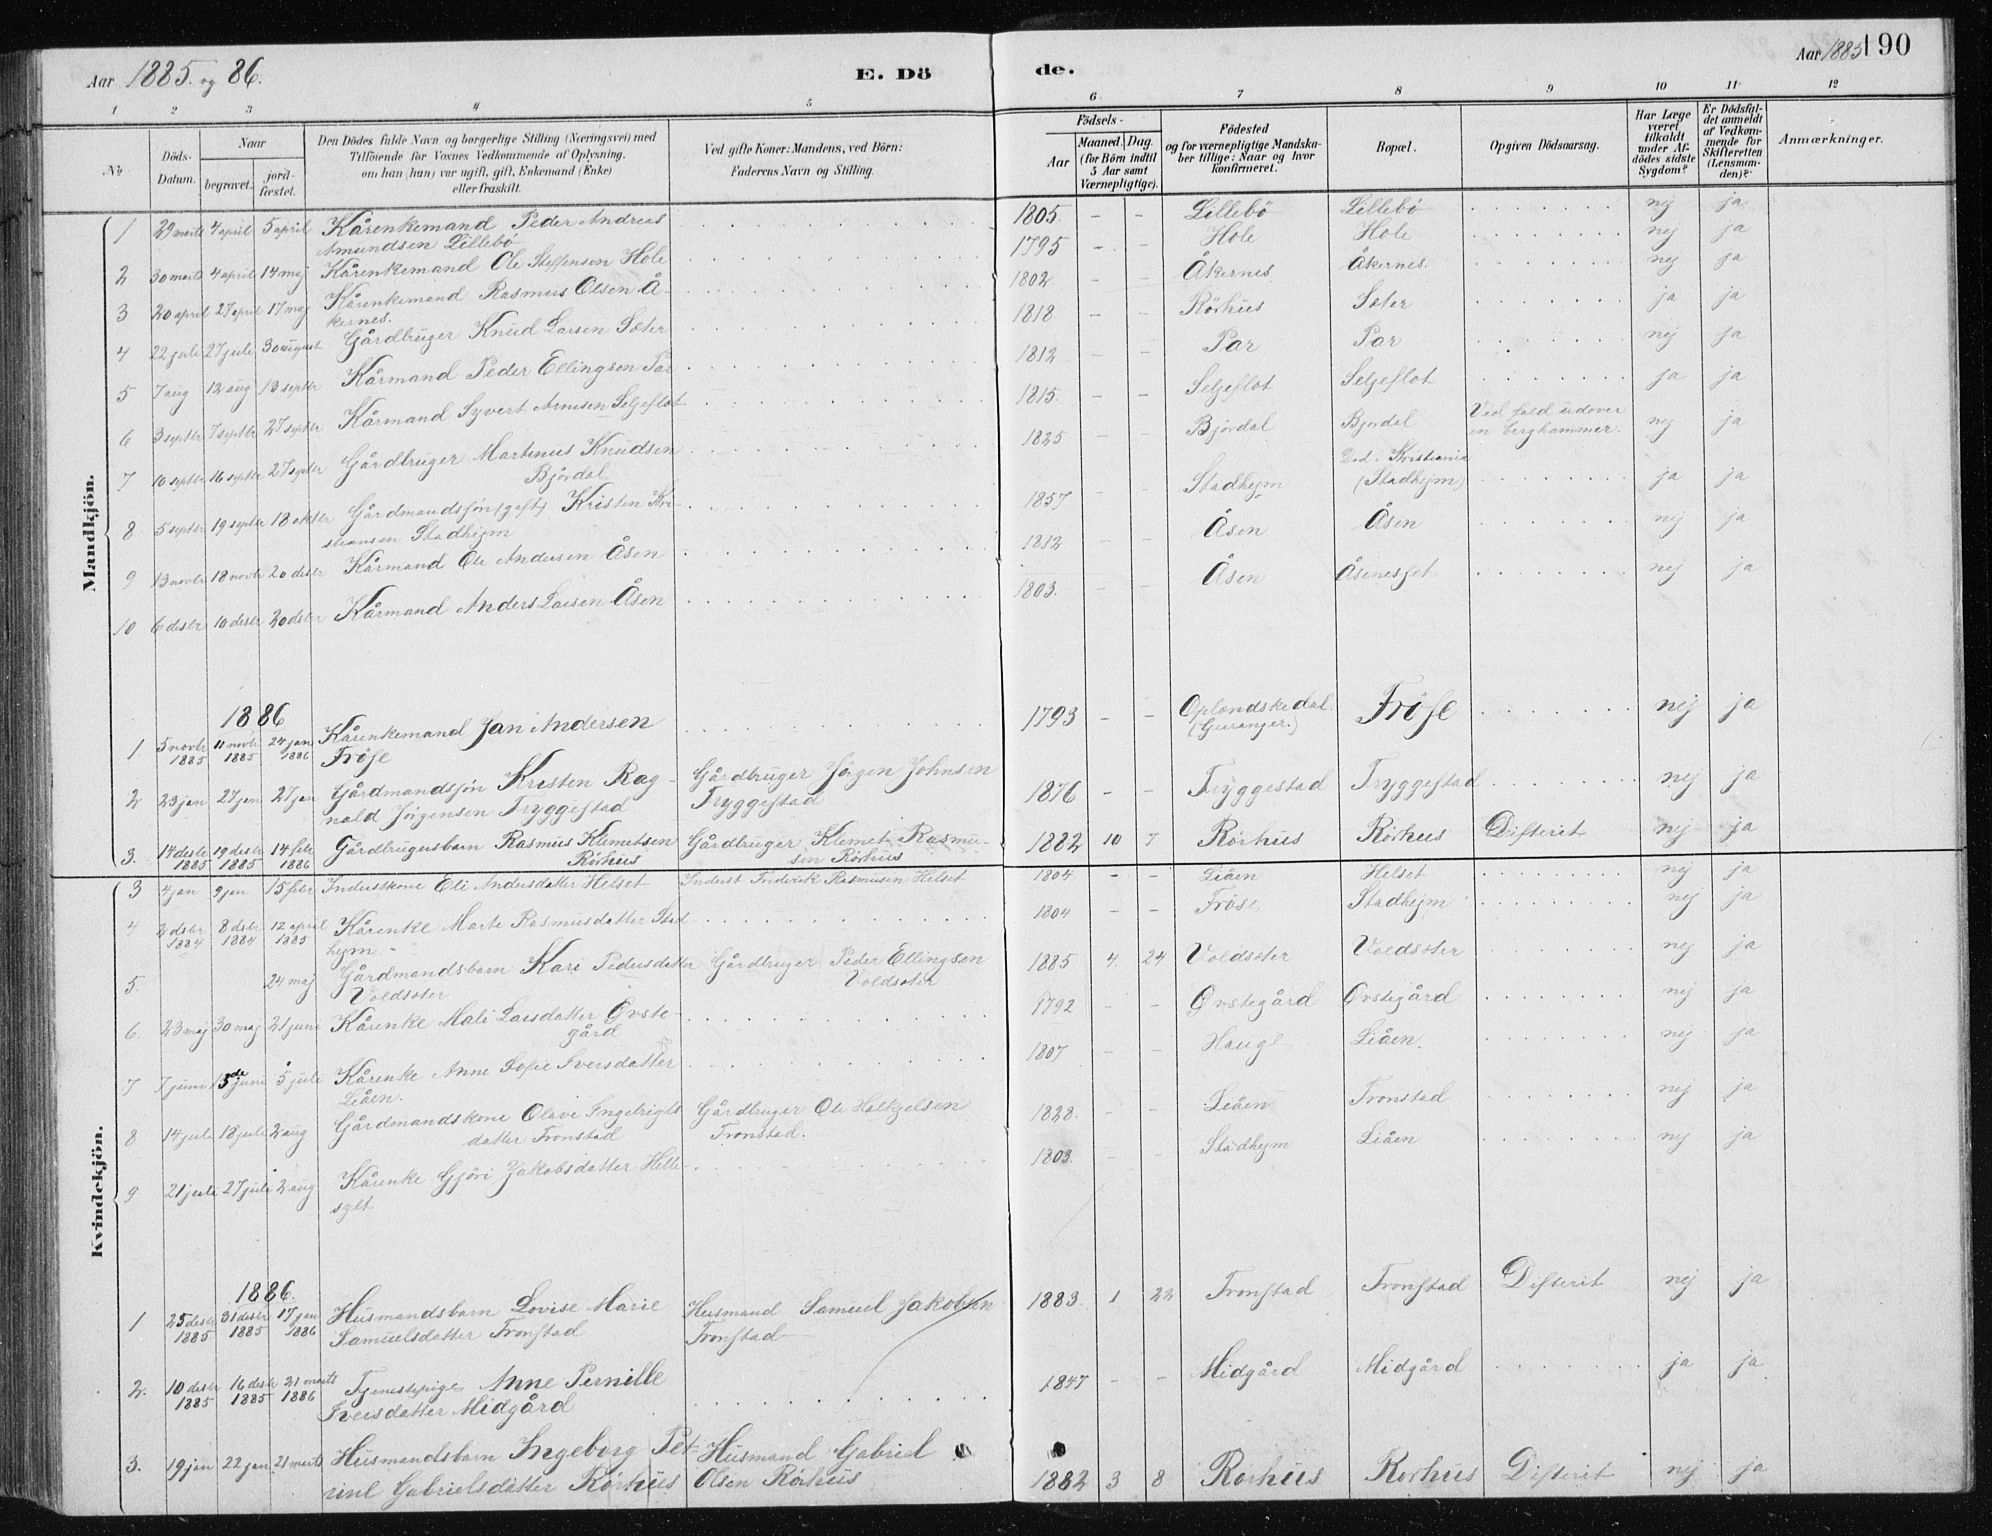 Aar 1885. og 86.
E. Dö
de.
Aar 1885 190
1 2 3 4 5 6 7 8 9 10 11 12
No
Döds-Datum.
Naar
begravet.
jordfæstet.
Den Dödes fulde Navn og borgerlige Stilling (Næringsvei) med
Tilföiende for Voxnes Vedkommende af Oplysning,
om han (hun) var ugift, gift, Enkemand (Enke)
eller fraskilt.
Ved gifte Koner: Mandens, ved Börn:
Faderens Navn og Stilling.
Födsels-
Aar
Maaned. Dag.
(for Börn indtil
5 Aar samt
Værnepligtige).
Födested
og for værnepligtige Mandska-
ber tillige: Naar og hvor
konfirmeret.
Bopæl.
Opgiven Dödsaarsag.
Har Læge
været
tilkaldt
under Af-
dödes sidste
Sygdom?
Er Dödsfal-
det anmeldt
af Vedkom-
mende for
Skifteretten
(Lensman-
den)?
Anmærkninger.
Mandkjön.
1 29 marts 4 april 5 april Kårenkemand Peder Andreas Amundsen Lillebö 1805 - - Lillebö Lillebö nej ja
2 30 marts 4 april 14 maj Kårenkemand Ole Steffensen Hole 1795 - - Hole Hole nej ja
3 20 april 27 april 17 maj Kårenkemand Rasmus Olsen Åkernes. 1802 - - Åkernes Åkernes. nej ja
4 22 juli 27 juli 30 august Gårdbruger Knud Larsen Sæter 1818 - - Rörhus Sæter ja ja
5 7 aug 12 aug 13 septbr Kårmand Peder Ellingsen Par 1812 - - Par Par nej ja
6 3 septbr 7 septbr 27 septbr Kårmand Syvert Arnesen Seljeflot 1815. - - Seljeflot Seljeflot ja ja
7 10 septbr 16 septbr 27 septbr Gårdbruger Martinus Knudsen Björdal 1825 - - Björdal Björdal Ved fald udover en berghammer. nej ja
8 5 septbr 19 septbr 18 oktbr Gårdmandssön (gift) Kristen Kristiansen Stadhejm 1857 - - Stadhejm Död i Kristiania (Stadhejm) ja ja
9 13 novbr 18 novbr 20 desbr Kårmand Ole Andersen Åsen 1812 - - Åsen Åsen nej ja
10 6 desbr 10 desbr 20 desbr Kårmand Anders Larsen Åsen 1803. - - Åsen Åsenesset nej ja
1886
1 5 novbr 1885 11 novbr 1885 24 jan 1886 Kårenkemand Jan Andersen Fröse 1793 - - Oplendskedal. (Geiranger.) Fröse nej ja
2 23 jan 27 jan 27 jan Gårdmandssön Kristen Ragnald Jörgensen Tryggestad Gårdbruger Jörgen Johnsen Tryggestad 1876 - - Tryggestad Tryggestad nej ja
3. 14 desbr 1885 19 desbr 1885 14 febr 1886 Gårdbrugersbarn Rasmus Klemetsen Rörhus Gårdbruger Klemet Rasmusen Rörhus 1882 10 7 Rörhus Rörhus Difterit nej ja
Kvindekjön.
3 4 jan 9 jan 15 febr Inderstkone Eli Andersdatter Helset Inderst Frederik Rasmusen Helset 1804 - - Liåen Helset nej ja
4 2 dsbr 1884 8 dsbr 1884 12 april 1885 Kårenke Marte Rasmusdatter Stadhejm 1804 - - Fröse Stadhejm nej ja
5. 24 maj Gårdmandsbarn Kari Pedersdatter Voldsæter Gårdbruger Peder Ellingsen Voldsæter 1885 4. 24 Voldsæter Voldsæter nej ja
6. 23 maj 30 maj 21 juni Kårenke Mali Larsdatter Övstegård 1792 - - Övstegård Övstegård nej ja
7 7 juni 13de juni 5 juli Kårenke Anne Sofie Iversdatter Liåen. 1807 - - Hauge Liåen. nej ja
8 14 juli 18 juli 2 aug Gårdmandskone Olave Ingebrigtsdatter Tronstad Gårdbruger Ole Holkjelsen Tronstad. 1828. - - Liåen Tronstad nej ja
9 21 juli 27 juli 2 aug Kårenke Gjöri Jakobsdatter Hellesylt 1803. - - Stadhejm Liåen nej ja
1886.
1 25 desbr 1885 31 desbr 1885 17 jan 1886 Husmandsbarn Lovise Marie Samuelsdatter Tronstad Husmand Samuel Jakobsen Tronstad 1883 1 22 Tronstad Tronstad Difterit nej ja
2. 10 desbr 1885 16 desbr 1885 21 marts 1886 Tjenestepige Anne Pernille Iversdatter Midgård 1847 - - Midgård Midgård ja ja
3. 19 jan 22 jan 21 marts Husmandsbarn Ingeborg Petrine Gabrielsdatter Rörhus Husmand Gabriel Olsen Rörhus 1882 3 8 Rörhus Rörhus Difterit nej ja